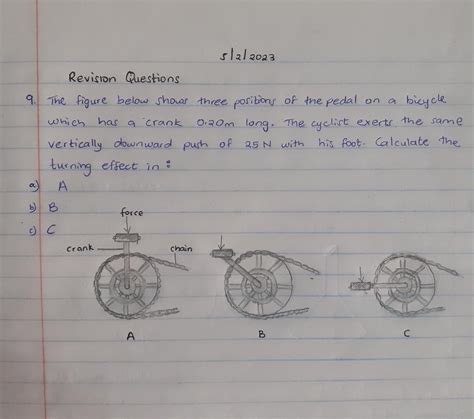 5/2/2023
Revision Questions
9. The figure below shows three positions of the pedal on a bicycle
which has a crank 0.20m long. The cyclist exerts the same
vertically downward push of 25N with his foot. Calculate the
turning effect in :
a) A
b) B
c) C
force
crank
chain
A
B
C